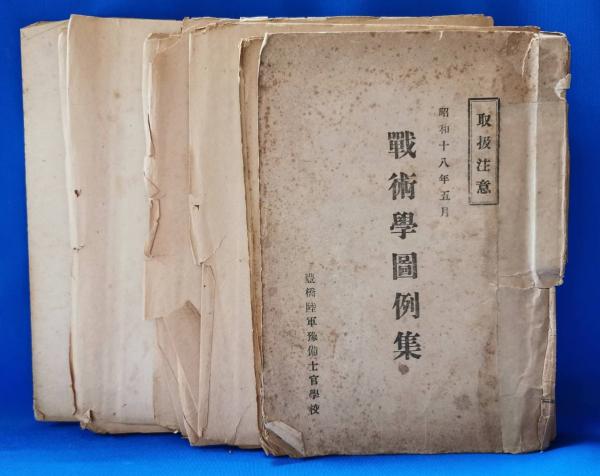 取扱注意
昭和十八年五月
戰術學圖例集
豐橋陸軍豫備士官學校